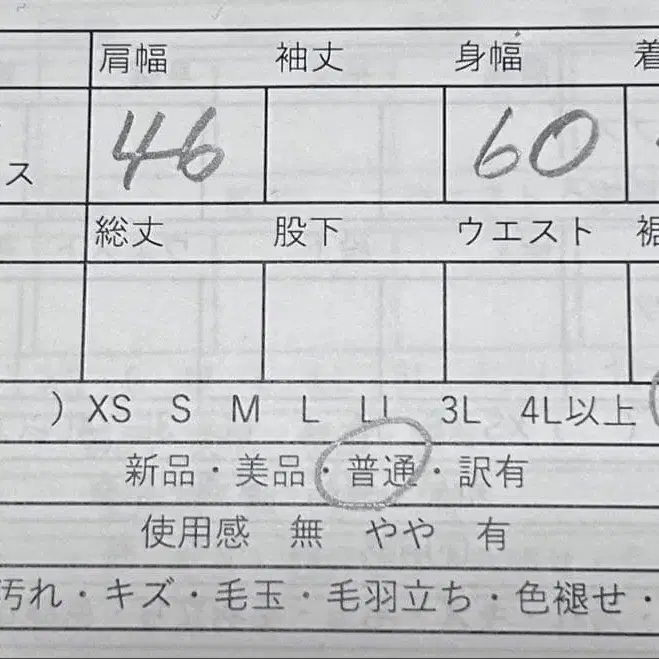 肩幅 袖丈 身幅 着
ス 46 60
総丈 股下 ウエスト 裾
) XS S M L LL 3L 4L以上
新品・美品・普通・訳有
使用感 無 やや 有
汚れ・キズ・毛玉・毛羽立ち・色褪せ・